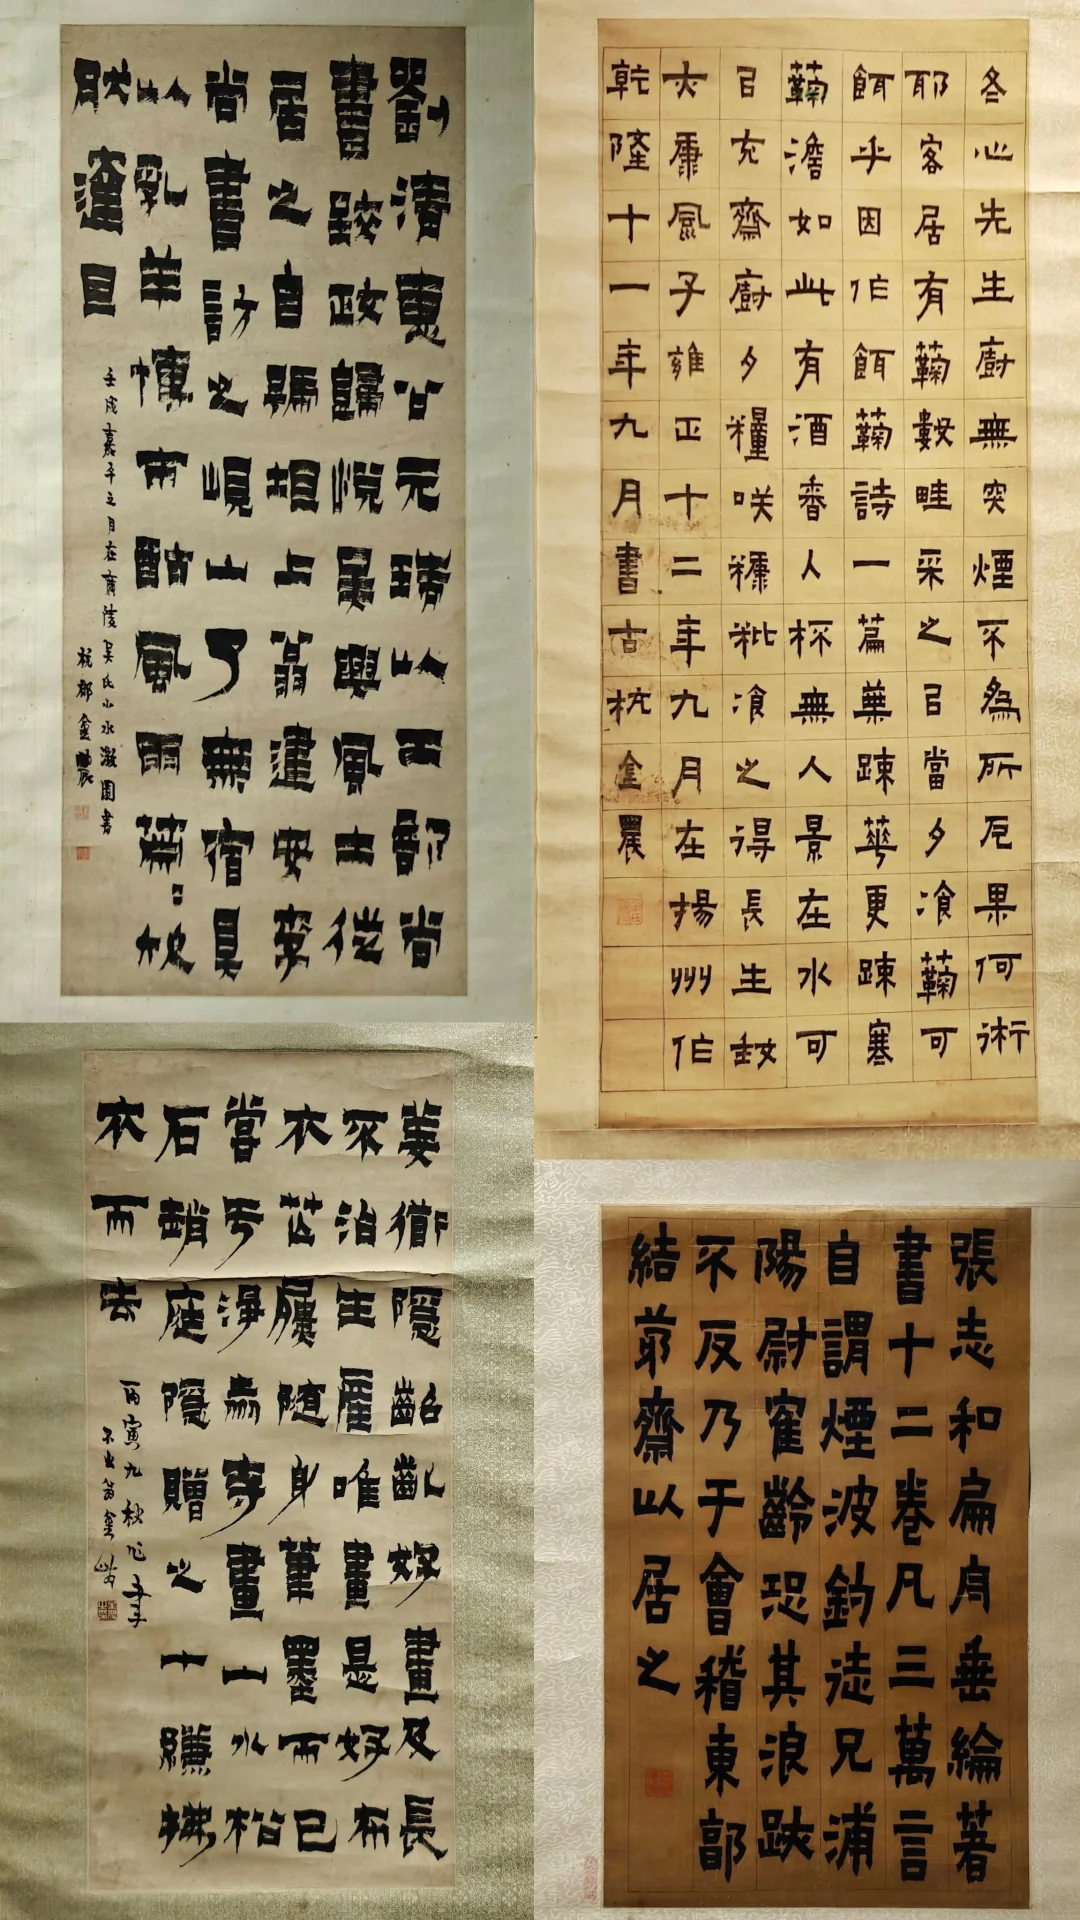 劉清惠公元瑞以工部尚
書政歸悅吳興風土從
居之自號坦上翁建安李
尚書訪之峴山了無宿具
以乳羊博市酤風雨蕭=欣
肰達旦
壬戌嘉平之月在廣陵吳氏小水漪園書
杭郡金農
冬心先生廚無突煙不為所厄果何術
耶客居有鞠數畦采之㠯當夕飡鞠可
餌乎因作餌鞠詩一篇葉疎華更疎寒
鞠澹如此有酒香人杯無人景在水可
㠯充齋廚夕糧咲糠粃飡之得長生
子雍正十二年九月在揚州作
乾隆十一年九月書古杭金農
姜衟隱齠齓好畫及長
不治生產唯畫是好布
衣芒屩隨身筆墨而已
嘗于淨慈寺畫山水松
石趙庭隱贈之十縑拂
衣而去
丙寅九秋作書
不出翁金農
張志和扁舟垂綸著
書十二卷凡三萬言
自謂煙波釣徒兄浦
陽尉寉齡恐其浪跡
不反乃于會稽東郭
結茅齋以居之